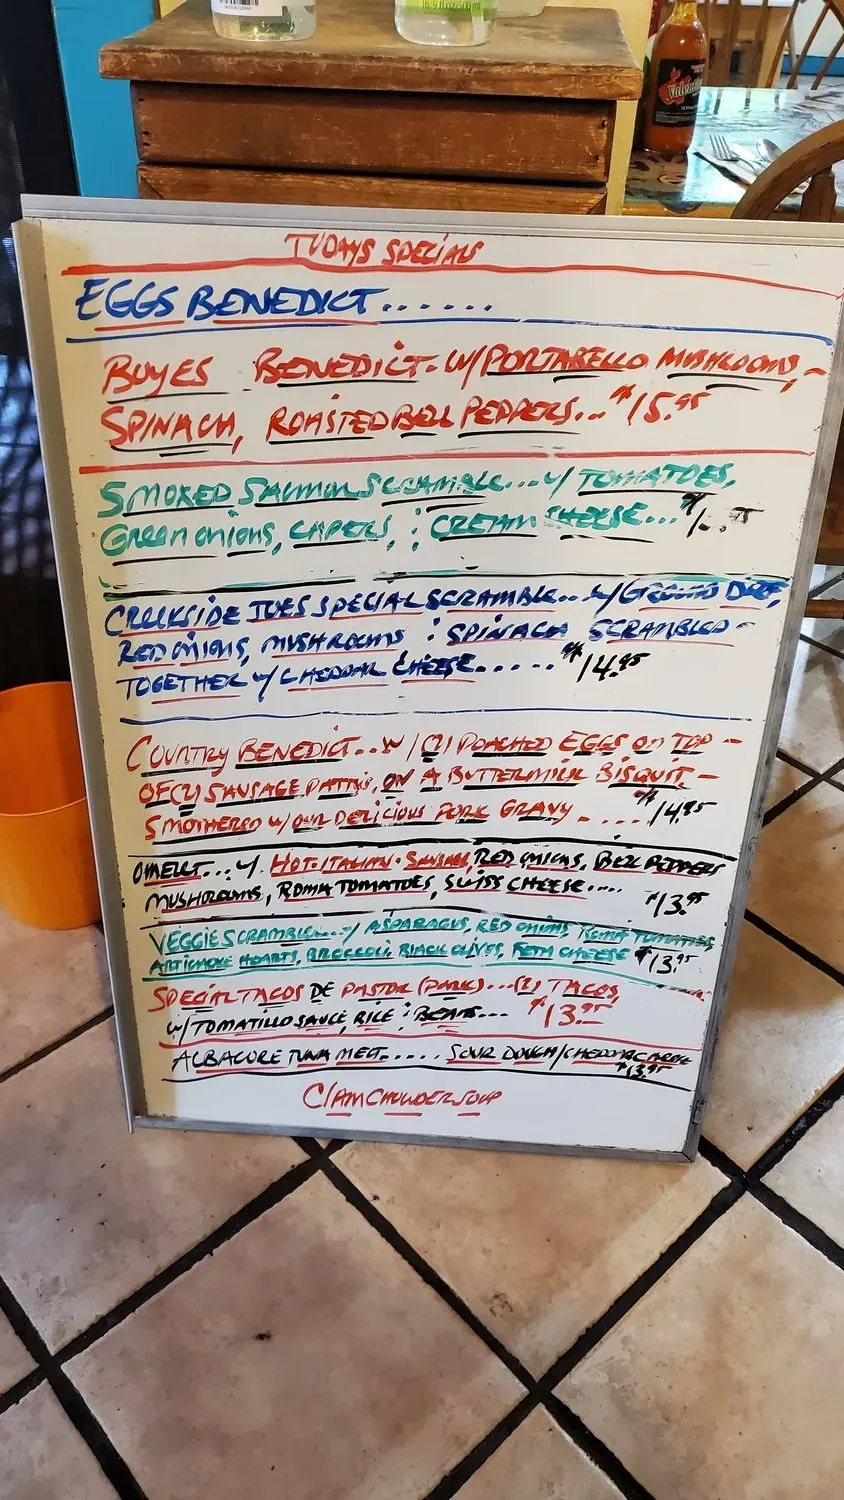 16.9 fl oz/500ml
Valentina
TODAYS SPECIALS
EGGS BENEDICT......
BUYES BENEDICT. W/PORTABELLO MUSHROOMS, -
SPINACH, ROASTED BELL PEPPERS... $15.95
SMOKED SALMON SCRAMBLE...w/ TOMATOES,
Green onions, CAPERS, : CREAM CHEESE...
CREEKSIDE JOES SPECIAL SCRAMBLE... w/GROUND
RED ONIONS, MUSHROOMS : SPINACH SCRAMBLED -
TOGETHER w/ CHEDDAR CHEESE..... $14.95
COUNTRY BENEDICT...W/(2) POACHED EGGS On TOP -
OF(2) SAUSAGE PATTYS, ON A BUTTERMILK BISQUIT, -
SMOTHERED w/OUR DELICIOUS PORK GRAVY ..... $14.95
OMELET... w/ HOT-ITALIAN-SAUSAGE, RED ONIONS, BELL PEPPERS
MUSHROOMS, ROMA TOMATOES, SWISS CHEESE.... $13.95
VEGGIE SCRAMBLE....w/ ASPARAGUS, RED ONIONS, ROMA TOMATOES,
ARTICHOKE HEARTS, BROCCOLI, BLACK OLIVES, FETA CHEESE $13.95
SPECIAL TACOS DE PASTOR (PORK)...(2) TACOS,
w/TOMATILLO SAUCE, RICE : BEANS... $13.95
ALBACORE TUNA MELT..... SOUR DOUGH/CHEDDAR
$13.95
ClAM CHOWDER SOUP